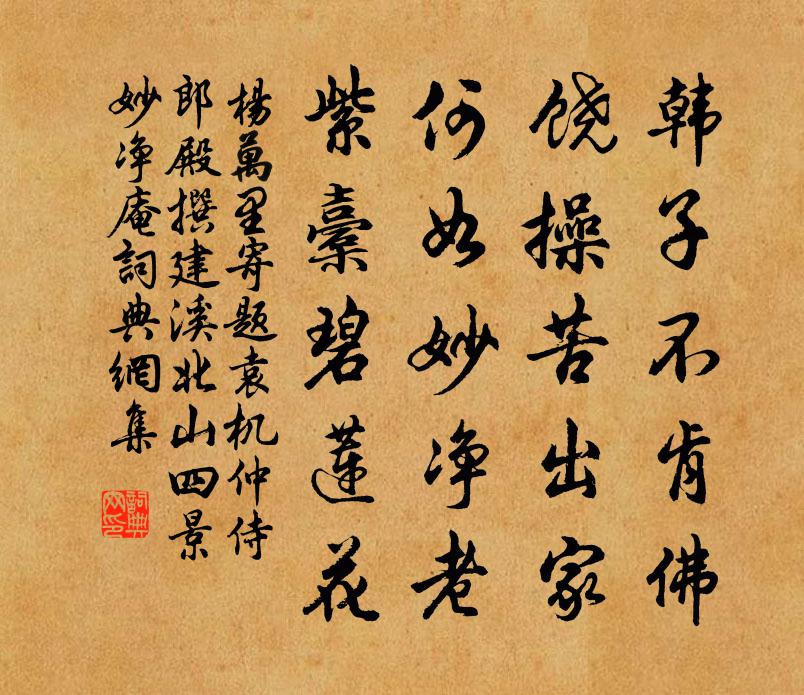 韩子不肯佛
饶操苦出家
何如妙净老
紫橐碧莲花
楊萬里寄题袁机仲侍
郎殿撰建溪北山四景
妙净庵詞典網集
詞典網印